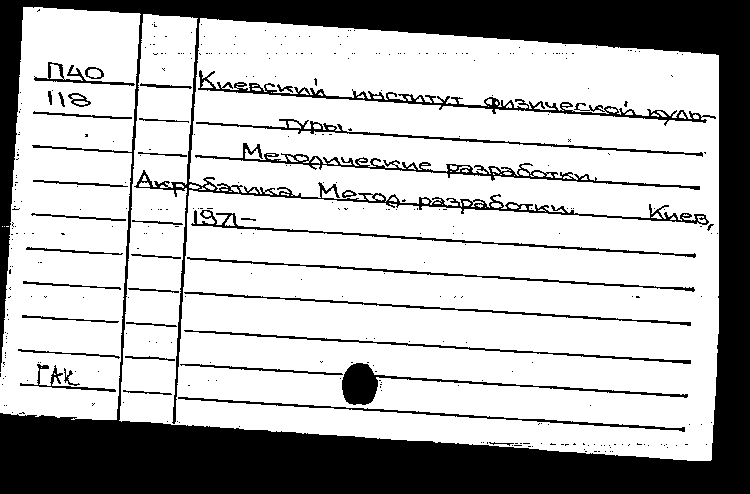 П40
118
Киевский институт физической куль-
туры.
Методические разработки.
Акробатика. Метод. разработки. Киев,
1971-
ГАК